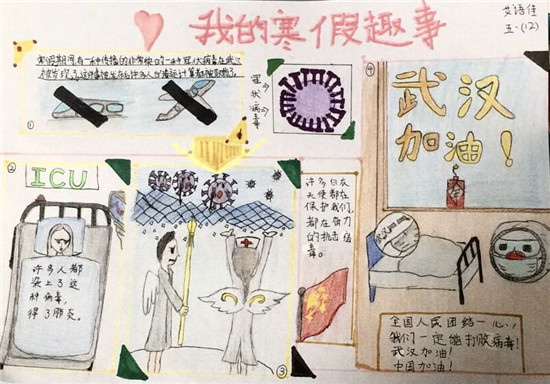 我的寒假趣事
艾语佳
五·(12)
寒假期间有一种传播的非常快的一种冠状病毒在武汉
被发现了,这件事就发生后许多人的春运计划都被取消了。
①
冠状病毒
④
武汉
加油!
②
ICU
许多人都
染上了这
种病毒,
得了肺炎。
③
许多白衣
天使都在
保护我们,
都在奋力
的抗击病
毒。
全国人民团结一心,
我们一定能打败病毒!
武汉加油!
中国加油!